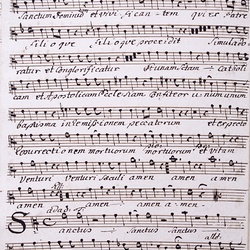 Sanctum Dominum et vivificantem qui ex Patre
filioque filioque procedit simul ado
ratur et conglorificatur et unam Sanctam Catholi
cam et Apostolicam Ecclesiam Confiteor unum unum
baptisma in remissionem peccatorum et expecto
resurrectionem mortuorum mortuorum et vitam
Venturi Venturi Saeculi amen amen amen
amen amen amen amen
Sanctus Sanctus Sanctus